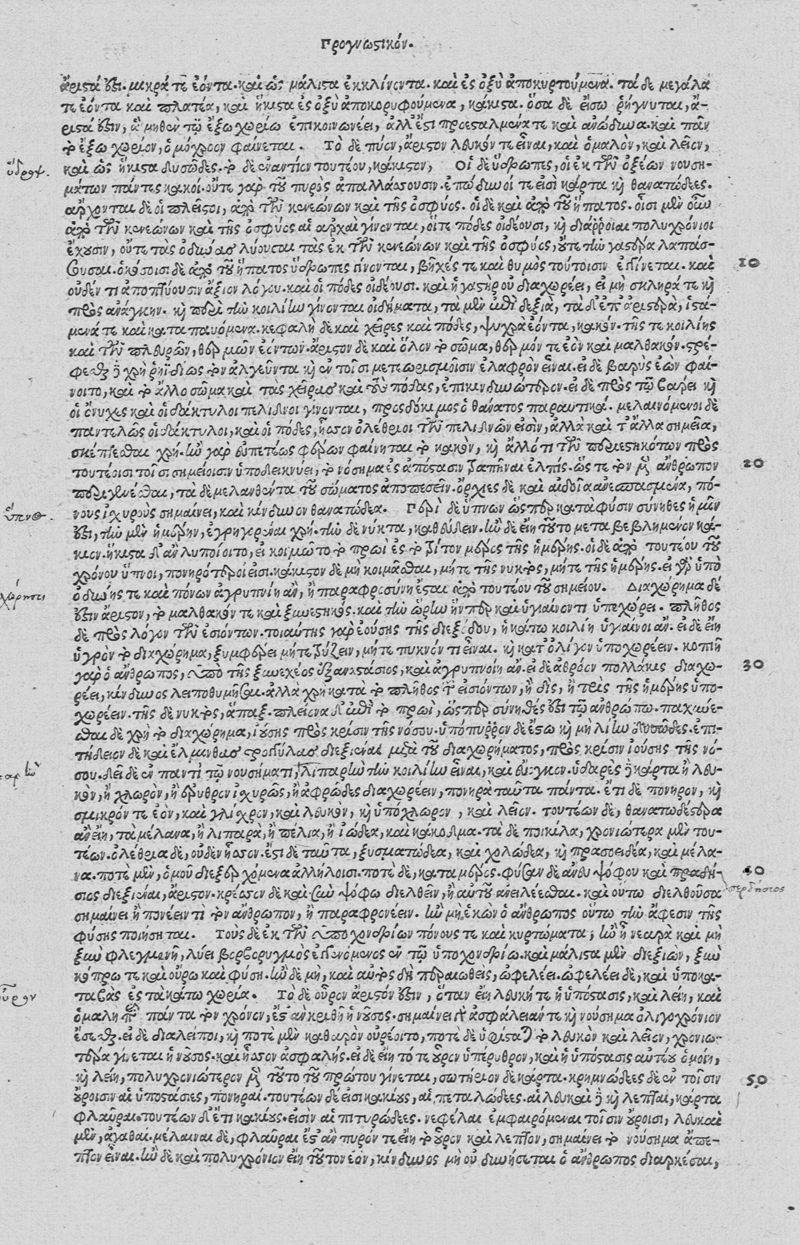 Προγνωστικόν.
ἄριστά ἐστι. μικρά τε ἐόντα. καὶ ὡς μάλιστα ἐκκλίνοντα. καὶ ἐς ὀξὺ ἀποκυρτούμενα. τὰ δὲ μεγάλα
τε ἐόντα καὶ πλατέα, καὶ ἥκιστα ἐς ὀξὺ ἀποκορυφούμενα, κάκιστα. ὅσα δὲ εἴσω ῥήγνυται, ἄ-
ριστά ἐστιν, ἃ μηθὲν τῷ ἔξω χωρίῳ ἐπικοινωνέει, ἀλλ' ἔστι προεσταλμένα τε καὶ ἀνώδυνα. καὶ πᾶν
τὸ ἔξω χωρίον, ὁμόχροον φαίνεται. Τὸ δὲ πύον, ἄριστον λευκόν τε εἶναι, καὶ ὁμαλόν, καὶ λεῖον,
καὶ ὡς ἥκιστα δυσῶδες. τὸ δὲ ἐναντίον τουτέου, κάκιστον, Οἱ δὲ ὕδρωπες, οἱ ἐκ τῶν ὀξέων νουση-
μάτων πάντες κακοί. οὔτε γὰρ τοῦ πυρὸς ἀπαλλάσσουσιν. ἐπώδυνοί τε εἰσὶ κάρτα καὶ θανατώδεες.
ἄρχονται δὲ οἱ πλεῖστοι, ἀπὸ τῶν κενεώνων καὶ τῆς ὀσφύος. οἱ δὲ καὶ ἀπὸ τοῦ ἥπατος. οἷσι μὲν οὖν
ἀπὸ τῶν κενεώνων καὶ τῆς ὀσφύος αἱ ἀρχαὶ γίνονται, οἵ τε πόδες οἰδέουσι, καὶ διάρροιαι πολυχρόνιοι
ἔχουσιν, οὔτε τὰς ὀδύνας λύουσαι τὰς ἐκ τῶν κενεώνων καὶ τῆς ὀσφύος, οὔτε τὴν γαστέρα λαπάσ-
σουσαι. ὁκόσοισι δὲ ἀπὸ τοῦ ἥπατος ὕδρωπες γίνονται, βήχές τε καὶ θυμὸς τούτοισιν ἐγγίνεται. καὶ
οὐδέν τι ἀποπτύουσιν ἄξιον λόγου. καὶ οἱ πόδες οἰδέουσι. καὶ ἡ γαστὴρ οὐ διαχωρέει, εἰ μὴ σκληρά τε καὶ
πρὸς ἀνάγκην. καὶ περὶ τὴν κοιλίην γίνονται οἰδήματα, τὰ μὲν ἐπὶ δεξιὰ, τὰ δ' ἐπ' ἀριστερὰ, ἱστά-
μενά τε καὶ καταπαυόμενα. κεφαλὴ δὲ καὶ χεῖρες καὶ πόδες, ψυχρὰ ἐόντα, κακόν. τῆς τε κοιλίης
καὶ τῶν πλευρῶν, θερμῶν ἐόντων. ἄριστον δὲ καὶ ὅλον τὸ σῶμα, θερμόν τε ἐὸν καὶ μαλθακόν. στρέ-
οἱ ὄνυχες καὶ οἱ δάκτυλοι πελιδνοὶ γίνονται, προσδόκιμος ὁ θάνατος παραυτίκα. μελαινόμενοι δὲ
παντελῶς οἱ δάκτυλοι, καὶ οἱ πόδες, ἧσσον ὀλέθριοι τῶν πελιδνῶν εἰσὶν, ἀλλὰ καὶ τἄλλα σημεῖα,
τουτέοισι τοῖσι σημείοισιν ὑποδεικνύει, τὸ νόσημα ἐς ἀπόστασιν τραπῆναι ἐλπίς. ὥς τε τὸν μὲν ἄνθρωπον
περιγενέσθαι, τὰ δὲ μελανθέντα τοῦ σώματος ἀποπεσεῖν. ὄρχιες δὲ καὶ αἰδοῖα ἀνεσπασμένα, πό-
νους ἰσχυροὺς σημαίνει, καὶ κίνδυνον θανατώδεα. Περὶ δὲ ὕπνων ὥσπερ κατὰ φύσιν σύνηθες ἡμῖν
ἐστι, τὴν μὲν ἡμέρην, ἐγρηγορέναι χρή. τὴν δὲ νύκτα, καθεύδειν. ἢν δὲ εἴη τοῦτο μεταβεβλημένον κά-
κιον. ἥκιστα δ' ἂν λυποίοιτο, εἰ κοιμῷτο τὸ πρωῒ ἐς τὸ τρίτον μέρος τῆς ἡμέρης. οἱ δὲ ἀπὸ τουτέου τοῦ
χρόνου ὕπνοι, πονηρότεροί εἰσι. κάκιστον δὲ μὴ κοιμᾶσθαι, μήτε τῆς νυκτὸς, μήτε τῆς ἡμέρης. εἰ γὰρ ὑπὸ
ὀδύνης τε καὶ πόνων ἀγρυπνίη ἂν, ἢ παραφροσύνη ἔσται ἀπὸ τουτέου τοῦ σημείου. Διαχώρημα δέ
ἐστιν ἄριστον, τὸ μαλθακόν τε καὶ ξυνεστηκός. καὶ τὴν ὥρην ἥνπερ καὶ ὑγιαίνοντι ὑπεχώρει. πλῆθος
δὲ πρὸς λόγον τῶν ἐσιόντων. τοιαύτης γὰρ ἐούσης τῆς διεξόδου, ἡ κάτω κοιλίη ὑγιαίνοι ἄν. εἰ δὲ εἴη
ὑγρὸν τὸ διαχώρημα, ξυμφέρει μήτε τρύζειν, μήτε πυκνόν τε εἶναι. καὶ κατ' ὀλίγον ὑποχωρέειν. κοπιῇ
γὰρ ὁ ἄνθρωπος, ὑπὸ τῆς ξυνεχέος ἐξαναστάσιος, καὶ ἀγρυπνοίη ἄν. εἰ δὲ ἀθρόον πολλάκις διαχω-
ρέει, κίνδυνος λειποθυμῆσαι. ἀλλὰ χρὴ κατὰ τὸ πλῆθος τῶν εἰσιόντων, ἢ δὶς, ἢ τρὶς τῆς ἡμέρης ὑπο-
χωρέειν. τῆς δὲ νυκτὸς, ἅπαξ. πλείονα δ' ἐπὶ τὸ πρωῒ, ὥσπερ σύνηθές ἐστι τῷ ἀνθρώπῳ. παχύνε-
σθαι δὲ χρὴ τὸ διαχώρημα, ἰούσης πρὸς κρίσιν τῆς νόσου. ὑπόπυρρον δὲ ἔστω καὶ μὴ λίην δυσῶδες. ἐπι-
τήδειον δὲ καὶ ἕλμινθας στρογγύλας διεξιέναι μετὰ τοῦ διαχωρήματος, πρὸς κρίσιν ἰούσης τῆς νό-
σου. δεῖ δὲ ἐν παντὶ τῷ νουσήματι, λιπαρὴν τὴν κοιλίην εἶναι, καὶ εὔογκον. ὑδαρὲς δὲ κάρτα ἢ λευ-
κὸν, ἢ χλωρὸν, ἢ ἐρυθρὸν ἰσχυρῶς, ἢ ἀφρῶδες διαχωρέειν, πονηρὰ ταῦτα πάντα. ἔτι δὲ πονηρὸν, καὶ
σμικρόν τε ἐὸν, καὶ γλίσχρον, καὶ λευκὸν, καὶ ὑπόχλωρον, καὶ λεῖον. τουτέων δὲ, θανατωδέστερα
ἂν εἴη, τὰ μέλανα, ἢ λιπαρὰ, ἢ πέλια, ἢ ἰώδεα, καὶ κάκοδμα. τὰ δὲ ποικίλα, χρονιώτερα μὲν του-
τέων. ὀλέθρια δὲ, οὐδὲν ἧσσον. ἔστι δὲ ταῦτα, ξυσματώδεα, καὶ χολώδεα, καὶ πρασοειδέα, καὶ μέλα-
να. ποτὲ μὲν, ὁμοῦ διεξερχόμενα ἀλλήλοισι. ποτὲ δὲ, κατὰ μέρος. φῦσαν δὲ ἄνευ ψόφου καὶ πραδή-
σιος διεξιέναι, ἄριστον. κρέσσον δὲ καὶ ξὺν ψόφῳ διελθεῖν, ἢ αὐτοῦ ἀνειλέεσθαι. καὶ οὕτω διελθοῦσα
σημαίνει ἢ πονέειν τι τὸν ἄνθρωπον, ἢ παραφρονέειν. ἢν μὴ ἑκὼν ὁ ἄνθρωπος οὕτω τὴν ἄφεσιν τῆς
φύσης ποιήσηται. Τοὺς δὲ ἐκ τῶν ὑποχονδρίων πόνους τε καὶ κυρτώματα, ἢν ᾖ νεαρὰ καὶ μὴ
ξὺν φλεγμονῇ, λύει βορβορυγμὸς ἐγγινόμενος ἐν τῷ ὑποχονδρίῳ. καὶ μάλιστα μὲν διεξιὼν, ξὺν
κόπρῳ τε καὶ οὔρῳ καὶ φύσῃ. ἢν δὲ μὴ, καὶ αὐτὸς διαπεραιωθεὶς, ὠφελέει. ὠφελέει δὲ, καὶ ὑποκα-
ταβὰς ἐς τὰ κάτω χωρία. Τὸ δὲ οὖρον ἄριστόν ἐστιν, ὅταν εἴη λευκή τε ἡ ὑπόστασις, καὶ λείη, καὶ
ὁμαλὴ παρὰ πάντα τὸν χρόνον, ἔς τ' ἂν κριθῇ ἡ νοῦσος. σημαίνει γὰρ ἀσφάλειάν τε καὶ νούσημα ὀλιγοχρόνιον
τερα γίνεται ἡ νοῦσος. καὶ ἧσσον ἀσφαλής. εἰ δὲ εἴη τό τε οὖρον ὑπέρυθρον, καὶ ἡ ὑπόστασις αὐτέου ὁμοίη,
καὶ λείη, πολυχρονιώτερον μὲν τοῦτο τοῦ πρώτου γίνεται, σωτήριον δὲ κάρτα. κριμνώδεες δὲ ἐν τοῖσιν
οὔροισιν αἱ ὑποστάσιες, πονηραί. τουτέων δέ εἰσι κακίους, αἱ πεταλώδεες. αἱ λευκαὶ δὲ καὶ λεπταὶ, κάρτα
φλαῦραι. τουτέων δ' ἔτι κακίους εἰσὶν αἱ πιτυρώδεες. νεφέλαι ἐμφαιρόμεναι τοῖσιν οὔροισι, λευκαὶ
μὲν, ἀγαθαί. μέλαιναι δὲ, φλαῦραι ἔστ' ἂν πυρόν τε εἴη τὸ οὖρον καὶ λεπτὸν, σημαίνει τὸ νούσημα ἄπε-
πτον εἶναι. ἢν δὲ καὶ πολυχρόνιον εἴη τοῦτον ἐὸν, κίνδυνος μὴ οὐ δυνήσεται ὁ ἄνθρωπος διαρκέσαι,
10
20
30
40
50